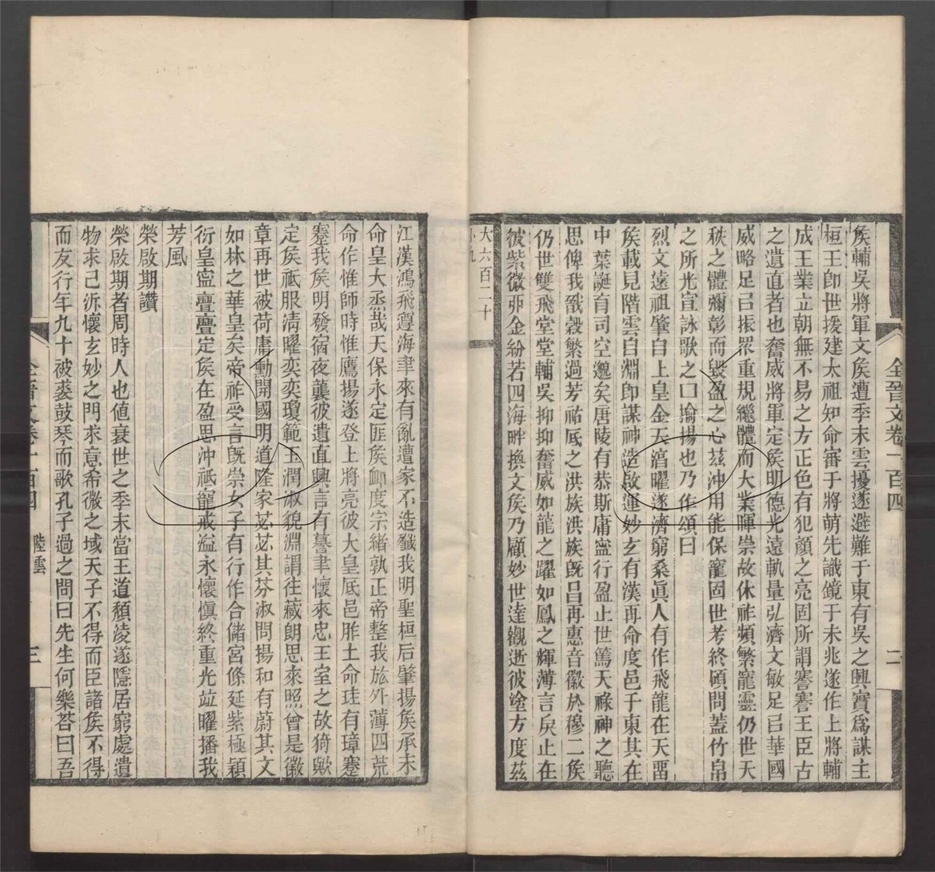 矦輔吳將軍文矦遭季末雲擾遂避難于東有吳之興實爲謀主
桓王卽世援建太祖知命審于將萌先識鏡于未兆遂作上將輔
成王業立朝無不易之方正色有犯顔之亮固所謂謇謇王臣古
之遺直者也奮威將軍定矦明德光遠軌量弘濟文敏足㠯華國
威略足㠯振眾重規繼體而大業暉崇故休祚頻繁寵靈仍世天
秩之體彌彰而毀盈之心茲沖用能保寵固世考終碩問蓋竹帛
之所光宣詠歌之口揄揚也乃作頌曰
烈文遠祖肇自上皇金天滈曜遂濟窮桑眞人有作飛龍在天畱
矦載見階雲自淵卽謀神造啟運妙玄有漢再命度邑于東其在
中葉誕育司空邈矣唐陵有恭斯庸寍行盈止世篤天祿神之聽
思俾我戩穀繁過芳祐厎之洪族洪族旣昌再惠音徽於穆二矦
仍世雙飛堂堂輔吳抑抑奮威如龍之躍如鳳之輝薄言戾止在
彼紫微 金紛若四海畔換文矦乃顧妙世達觀逝彼塗方度茲
大六百二十
全晉文卷一百四
二
江漢鴻飛遵海聿來有亂遭家不造繄我明聖桓后肇揚矦承未
命皇大丞哉天保永定匪矦卹度宗緒孰正帝整我旅外薄四荒
命作惟師時惟鷹揚遂登上將亮彼大皇厎邑胙土命珪有璋蹇
蹇我矦明發宿夜襲彼遺直興言有謩聿懷來忠王室之故猗歟
定矦祗服淸曜奕奕瓊範玉潤淑貌淵謂往藏朗思來照曾是徽
章再世被荷庸勳開國明道隆家苾苾其芬淑問揚和有蔚其文
如林之華皇矣帝祚受言旣崇女子有行作合儲宮條延紫極穎
衍皇寍亹亹定矦在盈思沖祗寵戒溢永懷愼終重光竝曜播我
芳風
榮啟期讚
榮啟期者周時人也値衰世之季末當王道頹淩遂隱居窮處遺
物求己泝懷玄妙之門求意希微之域天子不得而臣諸矦不得
而友行年九十被裘鼓琴而歌孔子過之問曰先生何樂荅曰吾
全晉文卷一百四
陸雲
三